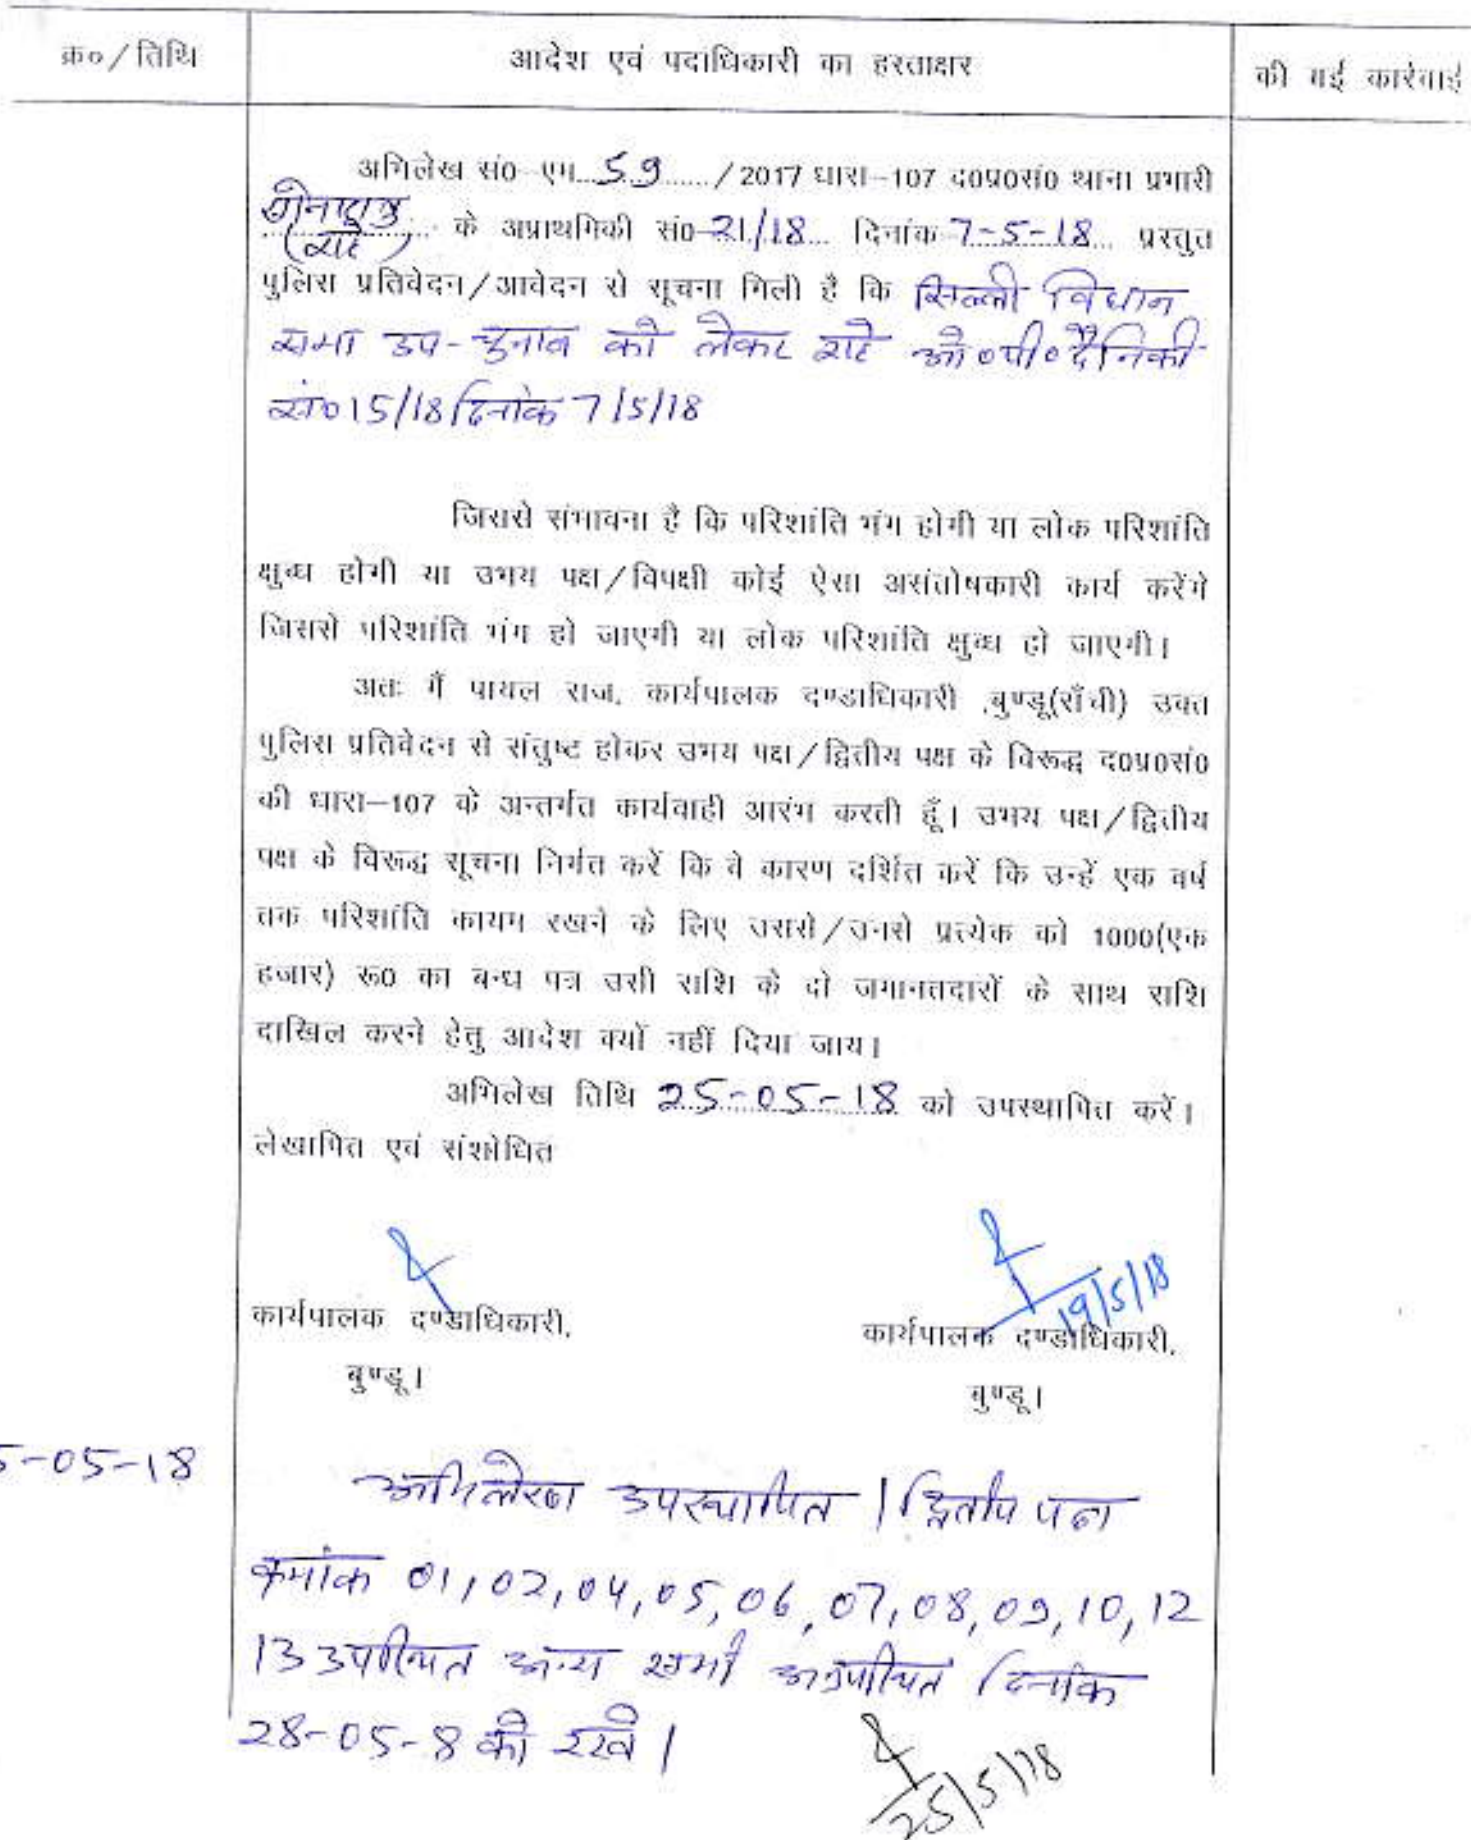 क्र०/तिथि
आदेश एवं पदाधिकारी का हस्ताक्षर
की गई कार्रवाई
अभिलेख सं0-एम 59 /2017 धारा-107 द0प्र0सं0 थाना प्रभारी
(राहे) के अप्राथमिकी सं0-21/18 दिनांक-7-5-18 प्रस्तुत
पुलिस प्रतिवेदन/आवेदन से सूचना मिली है कि सिल्ली विधान
सभा उप-चुनाव को लेकर राहे ओ०पी० दैनिकी
सं० 15/18 दिनांक 7/5/18
जिससे संभावना है कि परिशांति भंग होगी या लोक परिशांति
क्षुब्ध होगी या उभय पक्ष/विपक्षी कोई ऐसा असंतोषकारी कार्य करेंगे
जिससे परिशांति भंग हो जाएगी या लोक परिशांति क्षुब्ध हो जाएगी।
अतः मैं पायल राज, कार्यपालक दण्डाधिकारी ,बुण्डू(राँची) उक्त
पुलिस प्रतिवेदन से संतुष्ट होकर उभय पक्ष/द्वितीय पक्ष के विरूद्ध द0प्र0सं0
की धारा-107 के अन्तर्गत कार्यवाही आरंभ करती हूँ। उभय पक्ष/द्वितीय
पक्ष के विरूद्ध सूचना निर्गत करें कि वे कारण दर्शित करें कि उन्हें एक वर्ष
तक परिशांति कायम रखने के लिए उससे/उनसे प्रत्येक को 1000(एक
हजार) रू0 का बन्ध पत्र उसी राशि के दो जमानतदारों के साथ राशि
दाखिल करने हेतु आदेश क्यों नहीं दिया जाय।
अभिलेख तिथि 25-05-18 को उपस्थापित करें।
लेखापित एवं संशोधित
19/5/18
कार्यपालक दण्डाधिकारी,
कार्यपालक दण्डाधिकारी,
बुण्डू।
बुण्डू।
5-05-18
अभिलेख उपस्थापित । द्वितीय पक्ष
क्रमांक 01,02,04,05,06,07,08,09,10,12
13 उपस्थित अन्य सभी अनुपस्थित दिनांक
28-05-8 को रखें ।
25/5/18